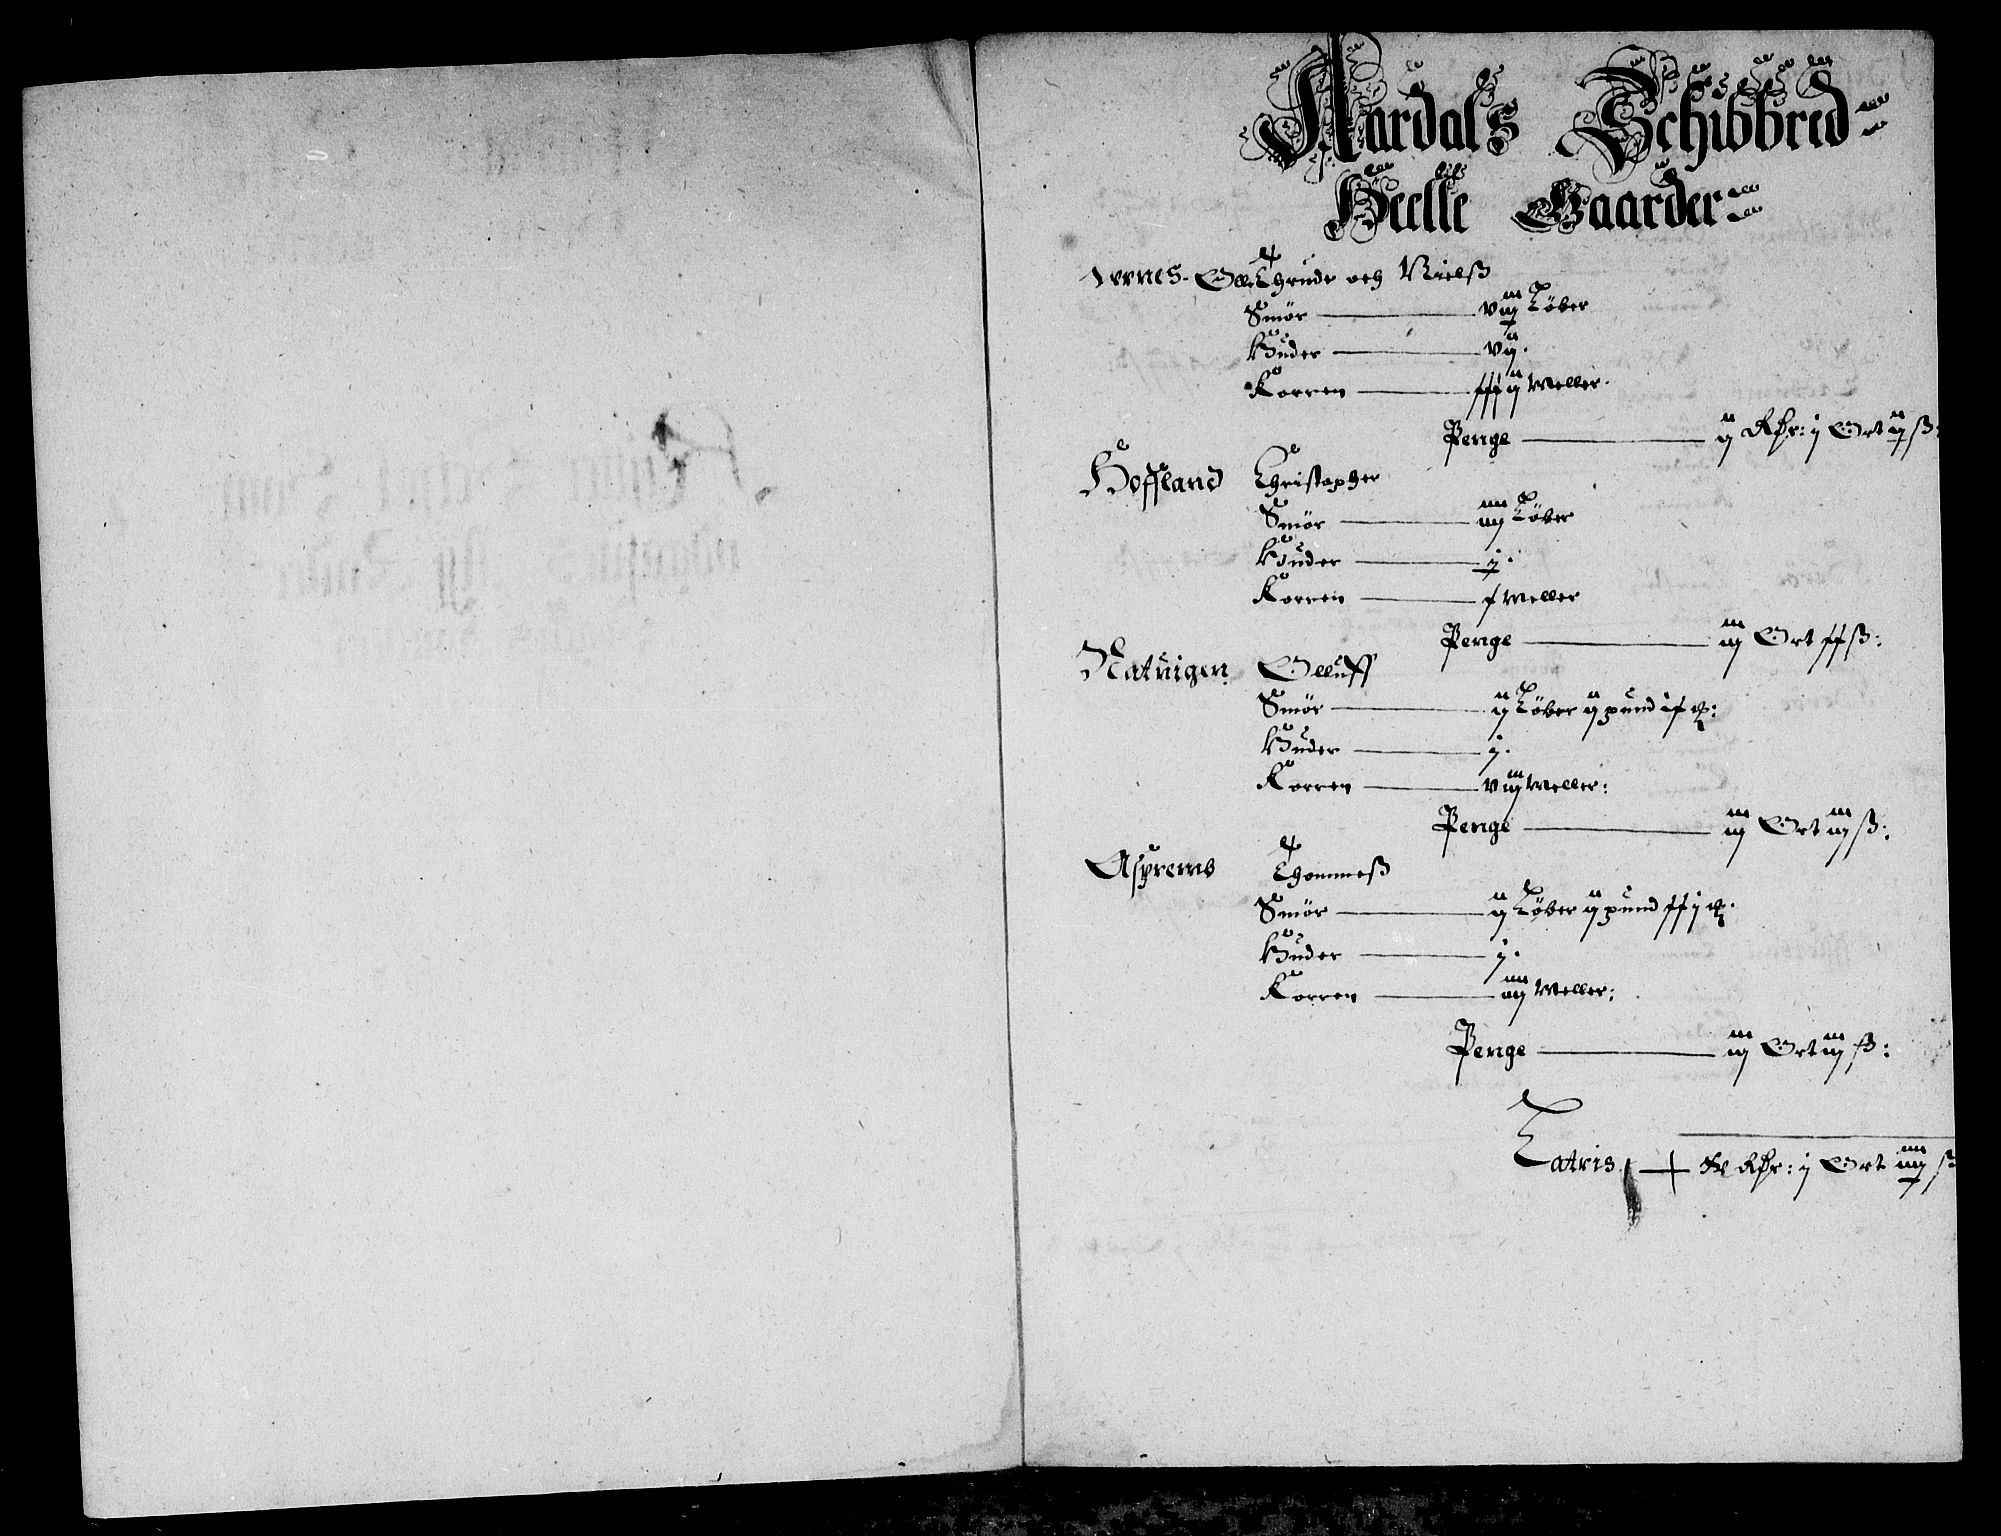 Aardals Schibbred
Heelle Gaarder
Erenes. Olle Thrude och Nielß
Smør viij Løber
Huder vij.
Korren xxxij Meller.
Penge ij Rdr: j Ort ij ß:
Hoffland Christopher
Smør iiij Løber
Huder j.
Korren x Meller
Penge iij Ort xx ß:
Natuigen Olluff
Smør ij Løber ij pund ix
Huder j.
Korren viij Meller:
Penge iij Ort iij ß:
Asprems Thommeß
Smør ij Løber ij pund xxj
Huder j.
Korren iiij Meller:
Penge iij Ort iij ß:
Latris Rdr: j Ort iiij ß